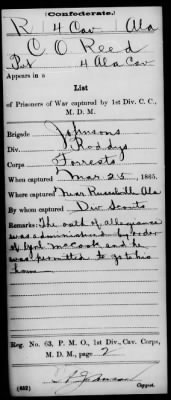 (Confederate.)
R 4 Cav Ala
C. O. Reed
Pvt 4 Ala Cav
Appears in a
List
of Prisoners of War captured by 1st Div. C. C.,
M. D. M.
Brigade Johnsons
Div. Roddys
Corps Forrests
When captured Mar. 25, 1865.
Where captured Near Russellville Ala
By whom captured Div Scouts
Remarks: The oath of allegiance
was administered by order
of McCook and he
was permitted to go to his
home
Reg. No. 63, P. M. O., 1st Div., Cav. Corps,
M. D. M., page 2
(652) Copyist.